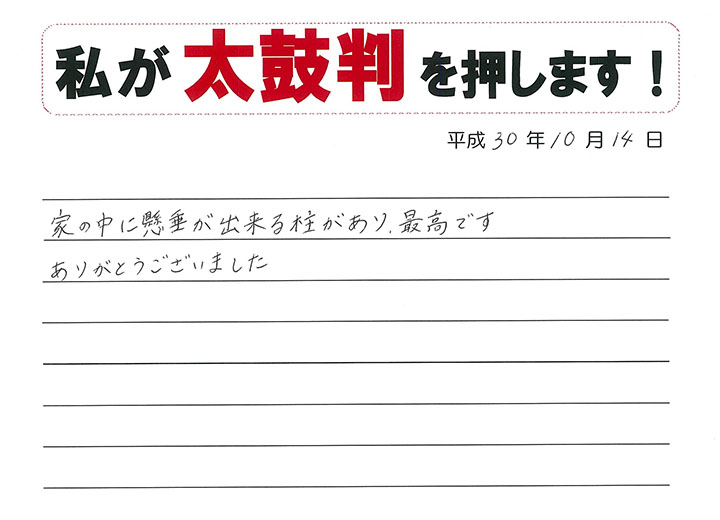 私が太鼓判を押します！
平成30年10月14日
家の中に懸垂が出来る柱があり、最高です
ありがとうございました